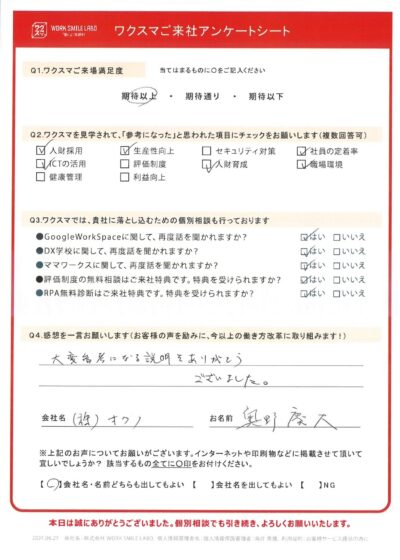 ワクスマ WORK SMILE LABO ワクスマご来社アンケートシート
Q1.ワクスマご来場満足度 当てはまるものに○をご記入ください
期待以上 ・ 期待通り ・ 期待以下
Q2.ワクスマを見学されて、「参考になった」と思われた項目にチェックをお願いします(複数回答可)
☑人財採用 ☑生産性向上 □セキュリティ対策 ☑社員の定着率
☑ICTの活用 □評価制度 ☑人財育成 ☑職場環境
□健康管理 □利益向上
Q3.ワクスマでは、貴社に落とし込むための個別相談も行っております
●GoogleWorkSpaceに関して、再度話を聞かれますか? ☑はい □いいえ
●DX学校に関して、再度話を聞かれますか? ☑はい □いいえ
●ママワークスに関して、再度話を聞かれますか? ☑はい □いいえ
●評価制度の無料相談はご来社特典です。特典を受けられますか? ☑はい □いいえ
●RPA無料診断はご来社特典です。特典を受けられますか? ☑はい □いいえ
Q4.感想を一言お願いします(お客様の声を励みに、今以上の働き方改革に取り組みます!)
大変参考になる説明をありがとう
ございました。
会社名 (株)オクノ お名前 奥野
※上記のお声についてお願いがございます。インターネットや印刷物などに掲載させて頂いて
宜しいでしょうか? 該当するもの全てに○印をお付けください。
【○】会社名・名前どちらも出してもよい 【 】会社名を出してもよい 【 】NG
本日は誠にありがとうございました。個別相談でも引き続き、よろしくお願いいたします。
2021.06.21 会社名:株式会社 WORK SMILE LABO